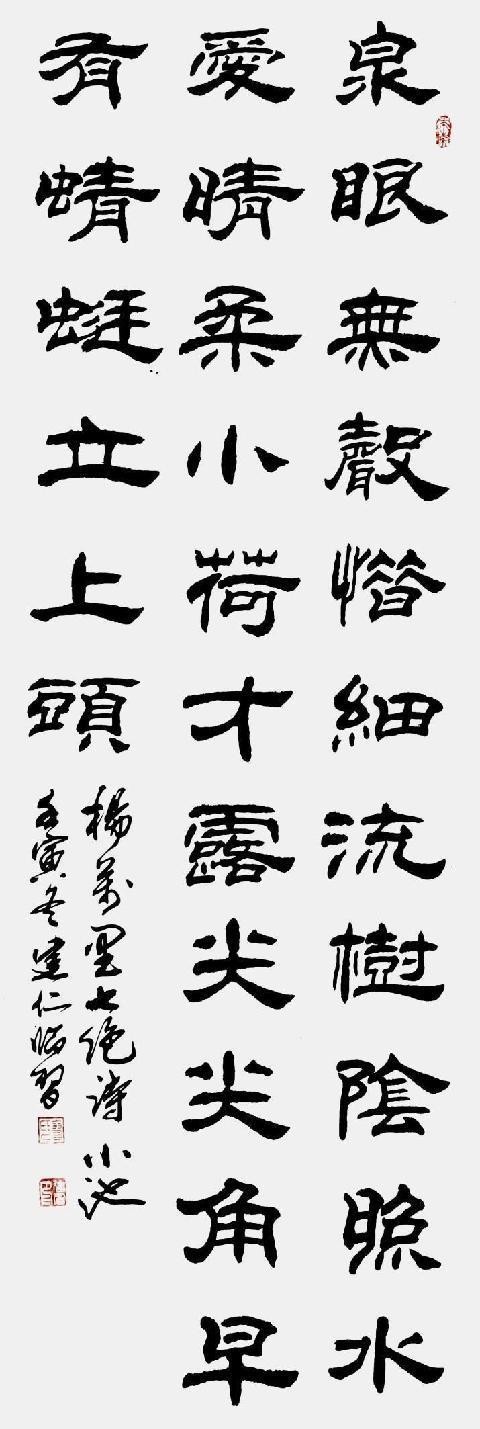 泉眼無聲惜細流樹陰照水
愛晴柔小荷才露尖尖角早
有蜻蜓立上頭
楊萬里七绝詩小池
壬寅冬建仁臨習